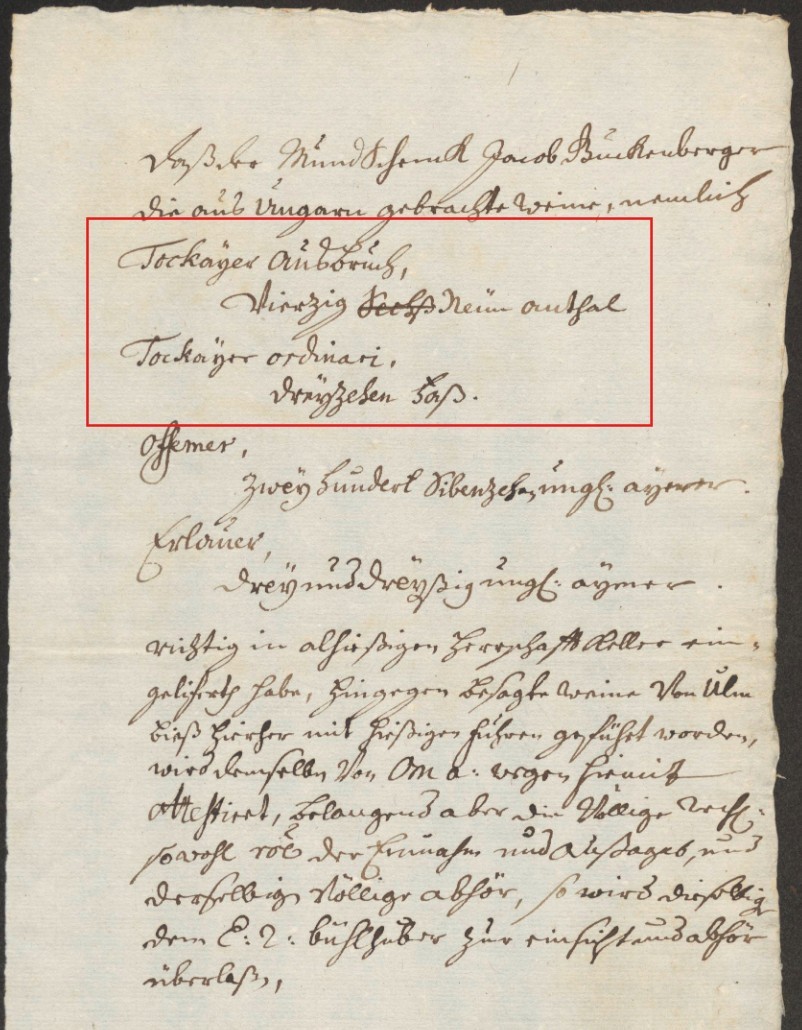 daß der MundSchenck Jacob Buckenberger
die aus Ungarn gebrachte weine, nemlich
Tockäyer Ausbruch,
Vierzig Sechß Neün anthal
Tockäyer ordinari,
dreyzehen Faß.
Offemer,
zweyhundert Sibenzehen ungl: aymer.
Erlauer,
drey und dreyßig ungl: aymer.
richtig in alhießigen Herrschafft Keller ein-
gelifert habe, hingegen besagte weine Von Ulm
bieß hierher mit hießigen führen geführt worden,
wird demselben Von wegen hiemit
attestiert, belangend aber die Völlige
sowohl der Einnahm und Außgab, und
derselbigen Völlige abhör, so wird dieselbige
dem buhlhuber zur einsicht und abhör
überlaßen,